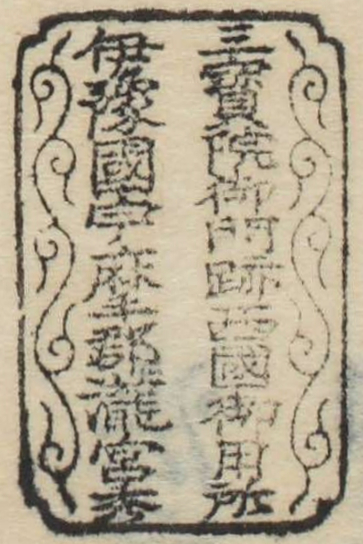 三寳院御門跡西國御用所
伊豫國宇摩郡瀧宮秀